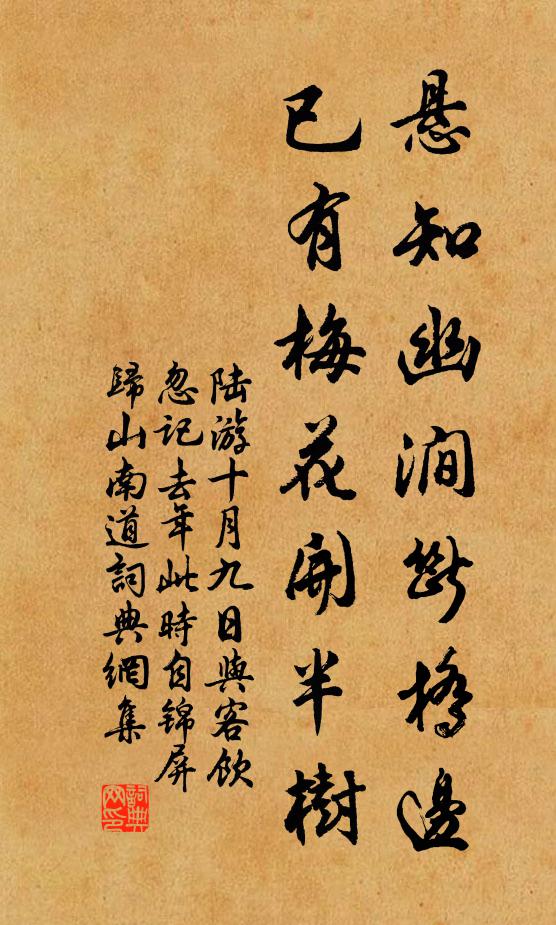 悬知幽澗斷橋邊
已有梅花開半樹
陆游十月九日與客飲
忽记去年此時自锦屏
歸山南道詞典網集
詞典網印